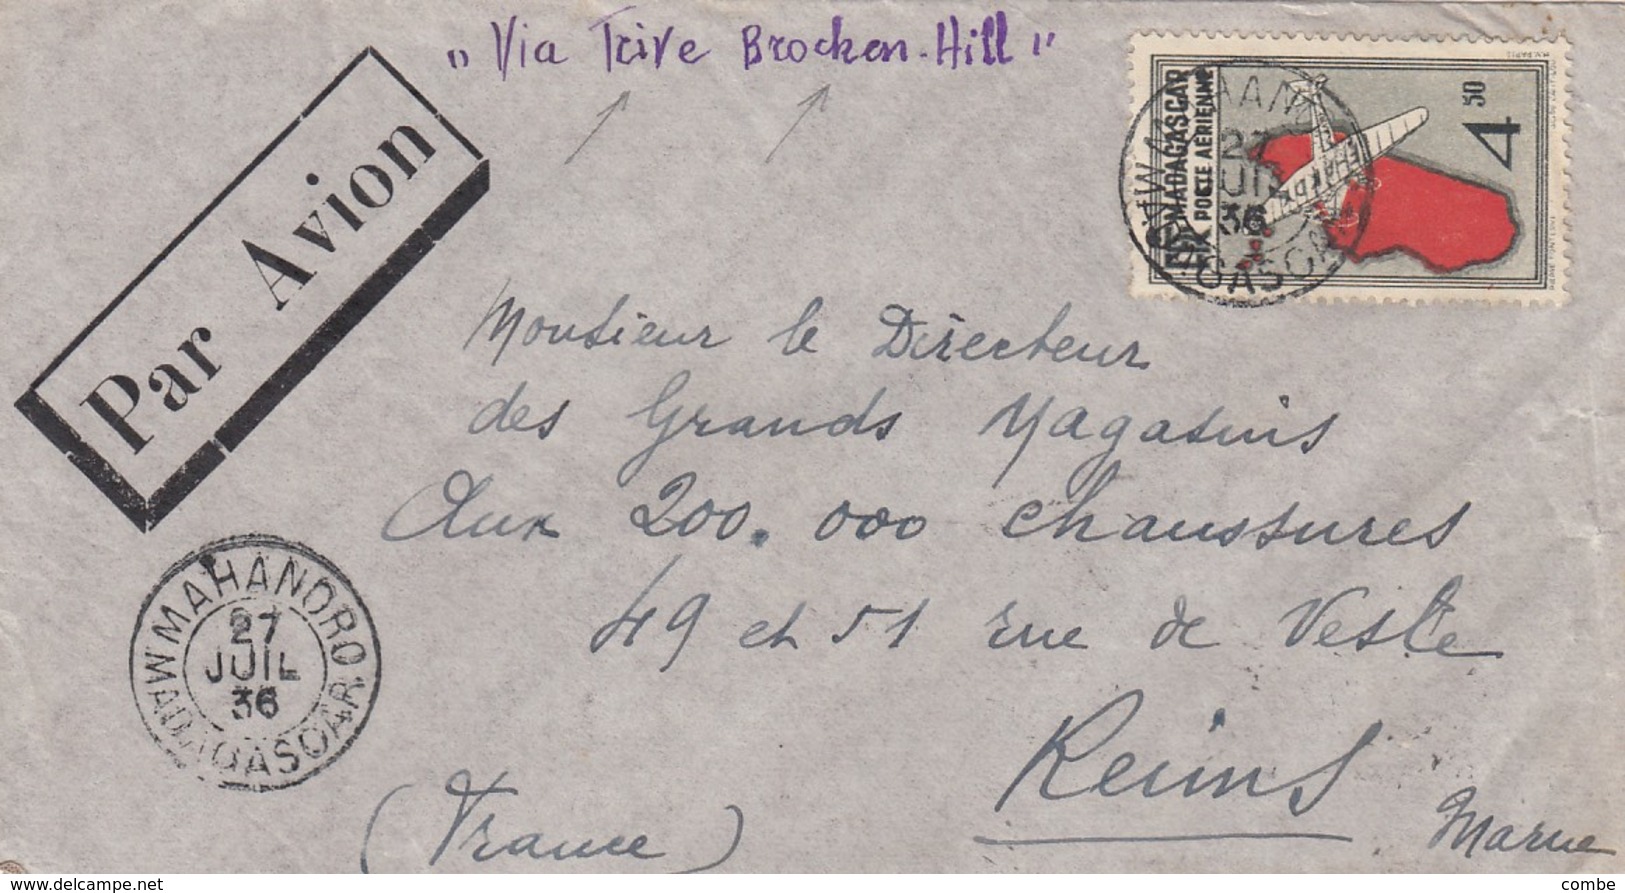 "Via Trive Brocken-Hill"
MADAGASCAR
POSTE AÉRIENNE
4 50
27
JUIL
36
Par Avion
Monsieur le Directeur
des Grands Magasins
Aux 200.000 chaussures
49 et 51 rue de Vesle
Reims
Marne
(France)
MAHANORO
27
JUIL
36
MADAGASCAR
combe